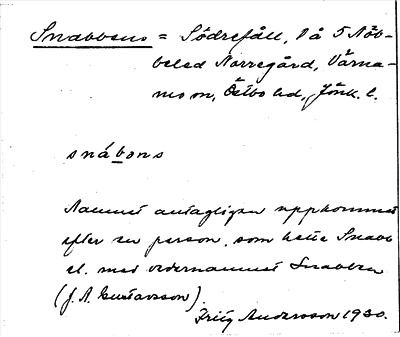 Snabbens = Södregåll, 1 å 5 Nöb-
beled Norregård, Värna-
mo sn, Östbo hd, Jönk. l.
snábons
Namnet antagligen uppkommet
efter en person, som hette Snabb
el. med vedernamnet Snabben
(J. A. Gustavsson).
Fritz Andersson 1930.